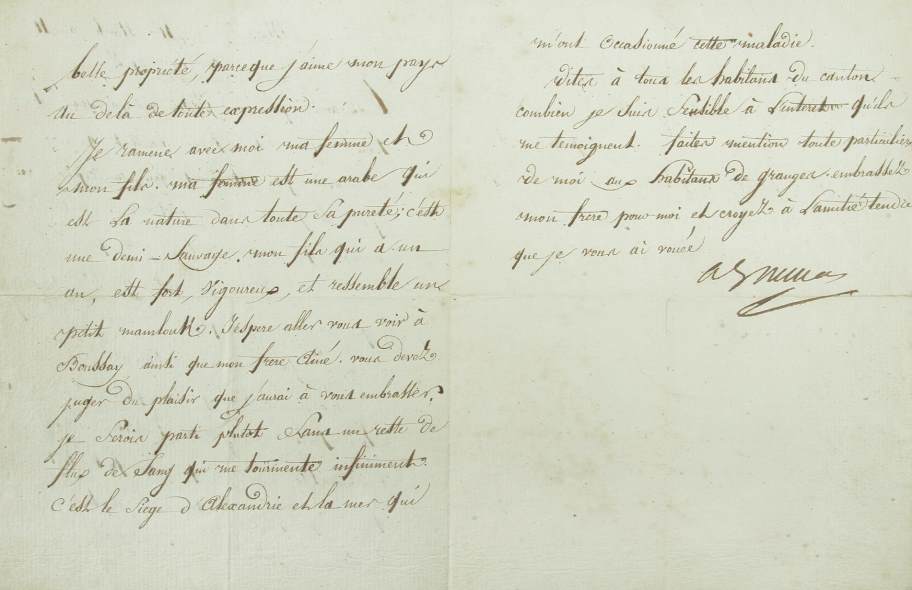 belle propriété, parceque j'aime mon pays
au delà de toute expression.
Je ramene avec moi ma femme et
mon fils. ma femme est une arabe qui
est la nature dans toute sa pureté; c'est
une demi-Sauvage. mon fils qui a un
an, est fort, vigoureux, et ressemble un
petit mamlouk. J'espere aller vous voir à
Boussay ainsi que mon frere ainé. vous devez
juger du plaisir que j'aurai à vous embrasser.
je serois parti plutot sans un reste de
flux de sang qui me tourmente infiniment.
c'est le siege d'Alexandrie et la mer qui
m'ont occasionné cette maladie.
Dites à tous les habitans du canton
combien je suis sensible à l'interet qu'ils
me temoignent. faites mention toute particuliere
de moi aux habitans de granges. embrassez
mon frere pour moi et croyez à l'amitié tendre
que je vous ai vouée